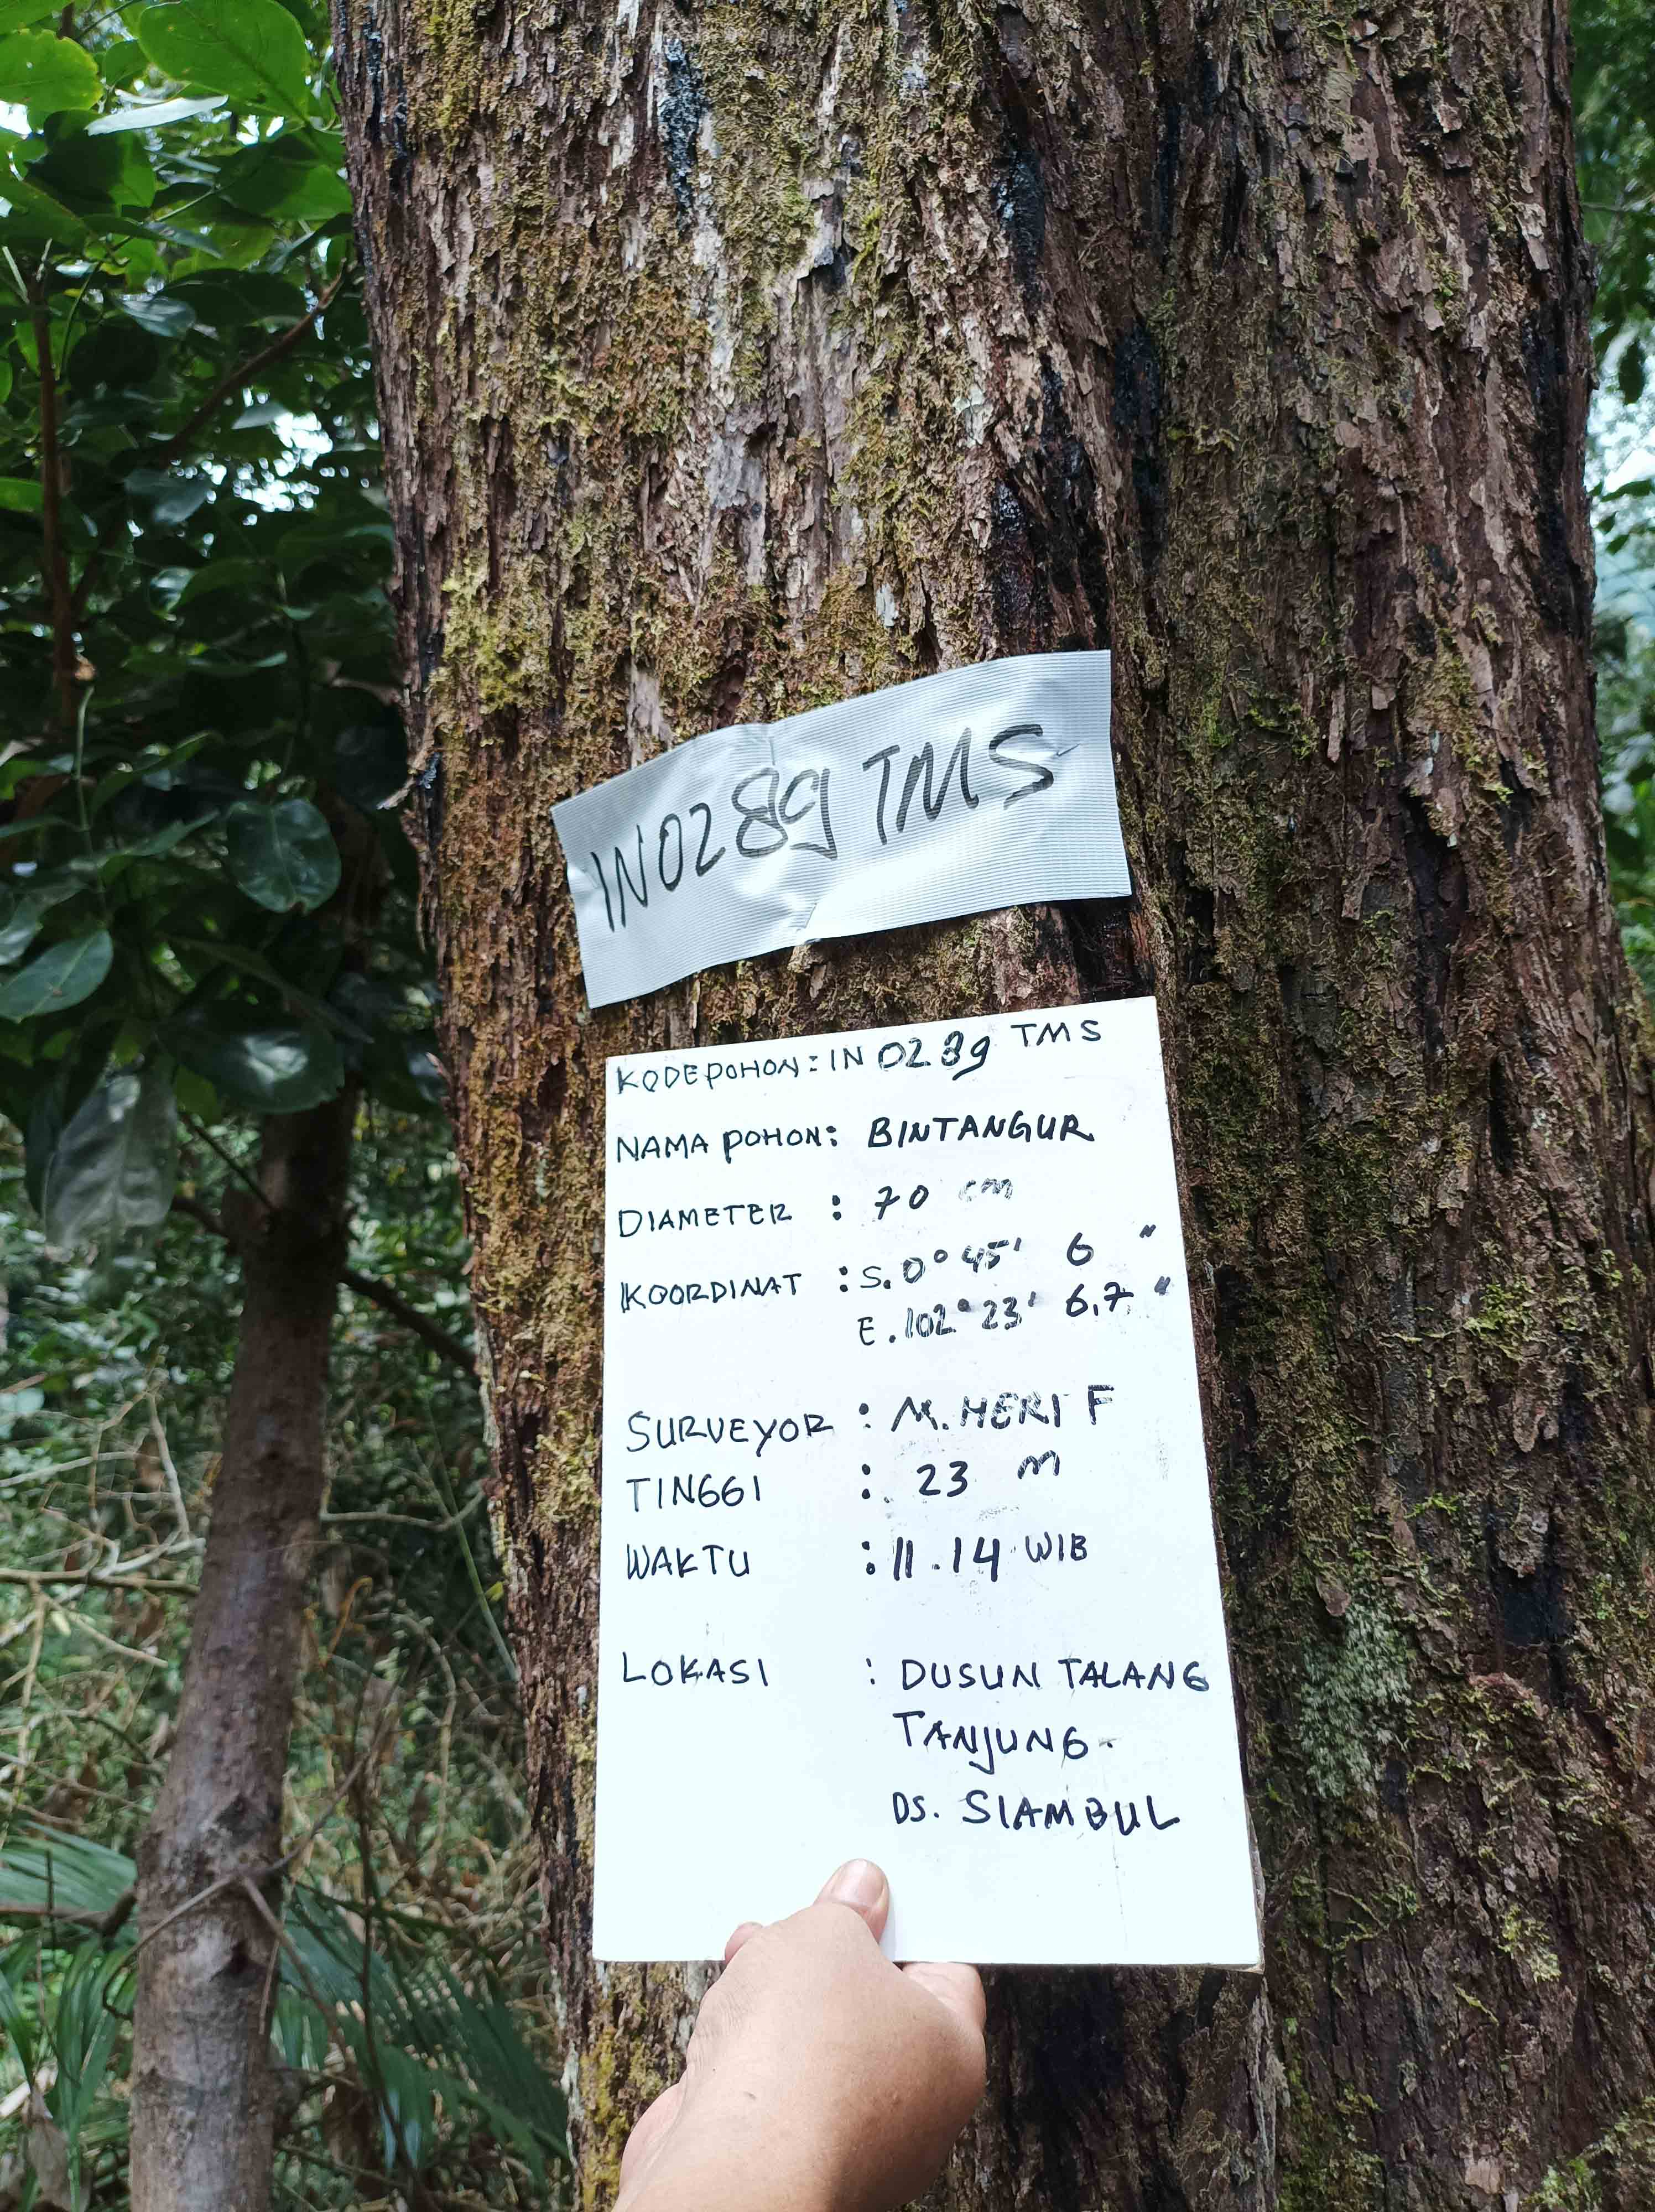 IN0289 TMS
KODE POHON : IN 0289 TMS
NAMA POHON : BINTANGUR
DIAMETER : 70 cm
KOORDINAT : S. 0° 45' 6 "
E. 102° 23' 6,7 "
SURVEYOR : M. HERI F
TINGGI : 23 m
WAKTU : 11.14 WIB
LOKASI : DUSUN TALANG
TANJUNG.
DS. SIAMBUL